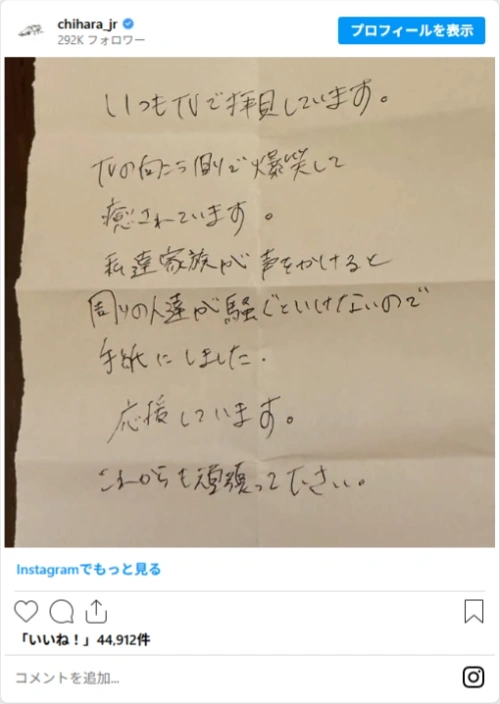 chihara_jr
292K フォロワー
プロフィールを表示
いつもTVで拝見しています。
TVの向こう側で爆笑して
癒されています。
私達家族が声をかけると
周りの人達が騒ぐといけないので
手紙にしました.
応援しています。
これからも頑張って下さい。
Instagramでもっと見る
「いいね！」44,912件
コメントを追加...